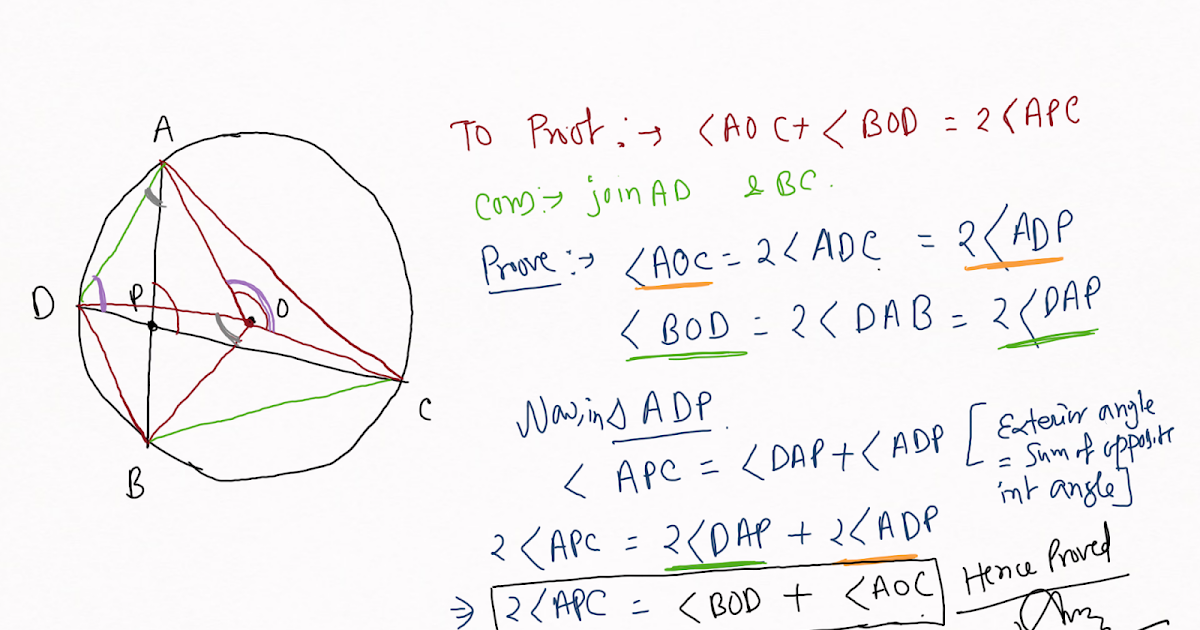 A
D
P
O
B
C
TO Proof :→ <AOC + < BOD = 2<APC
Cons :→ join AD & BC.
Proove :→ <AOC = 2<ADC = 2<ADP
< BOD = 2<DAB = 2<DAP
Now, in Δ ADP
< APC = <DAP + <ADP [Exterior angle
= Sum of opposite
int angle]
2<APC = 2<DAP + 2<ADP
⇒ 2<APC = <BOD + <AOC Hence Proved